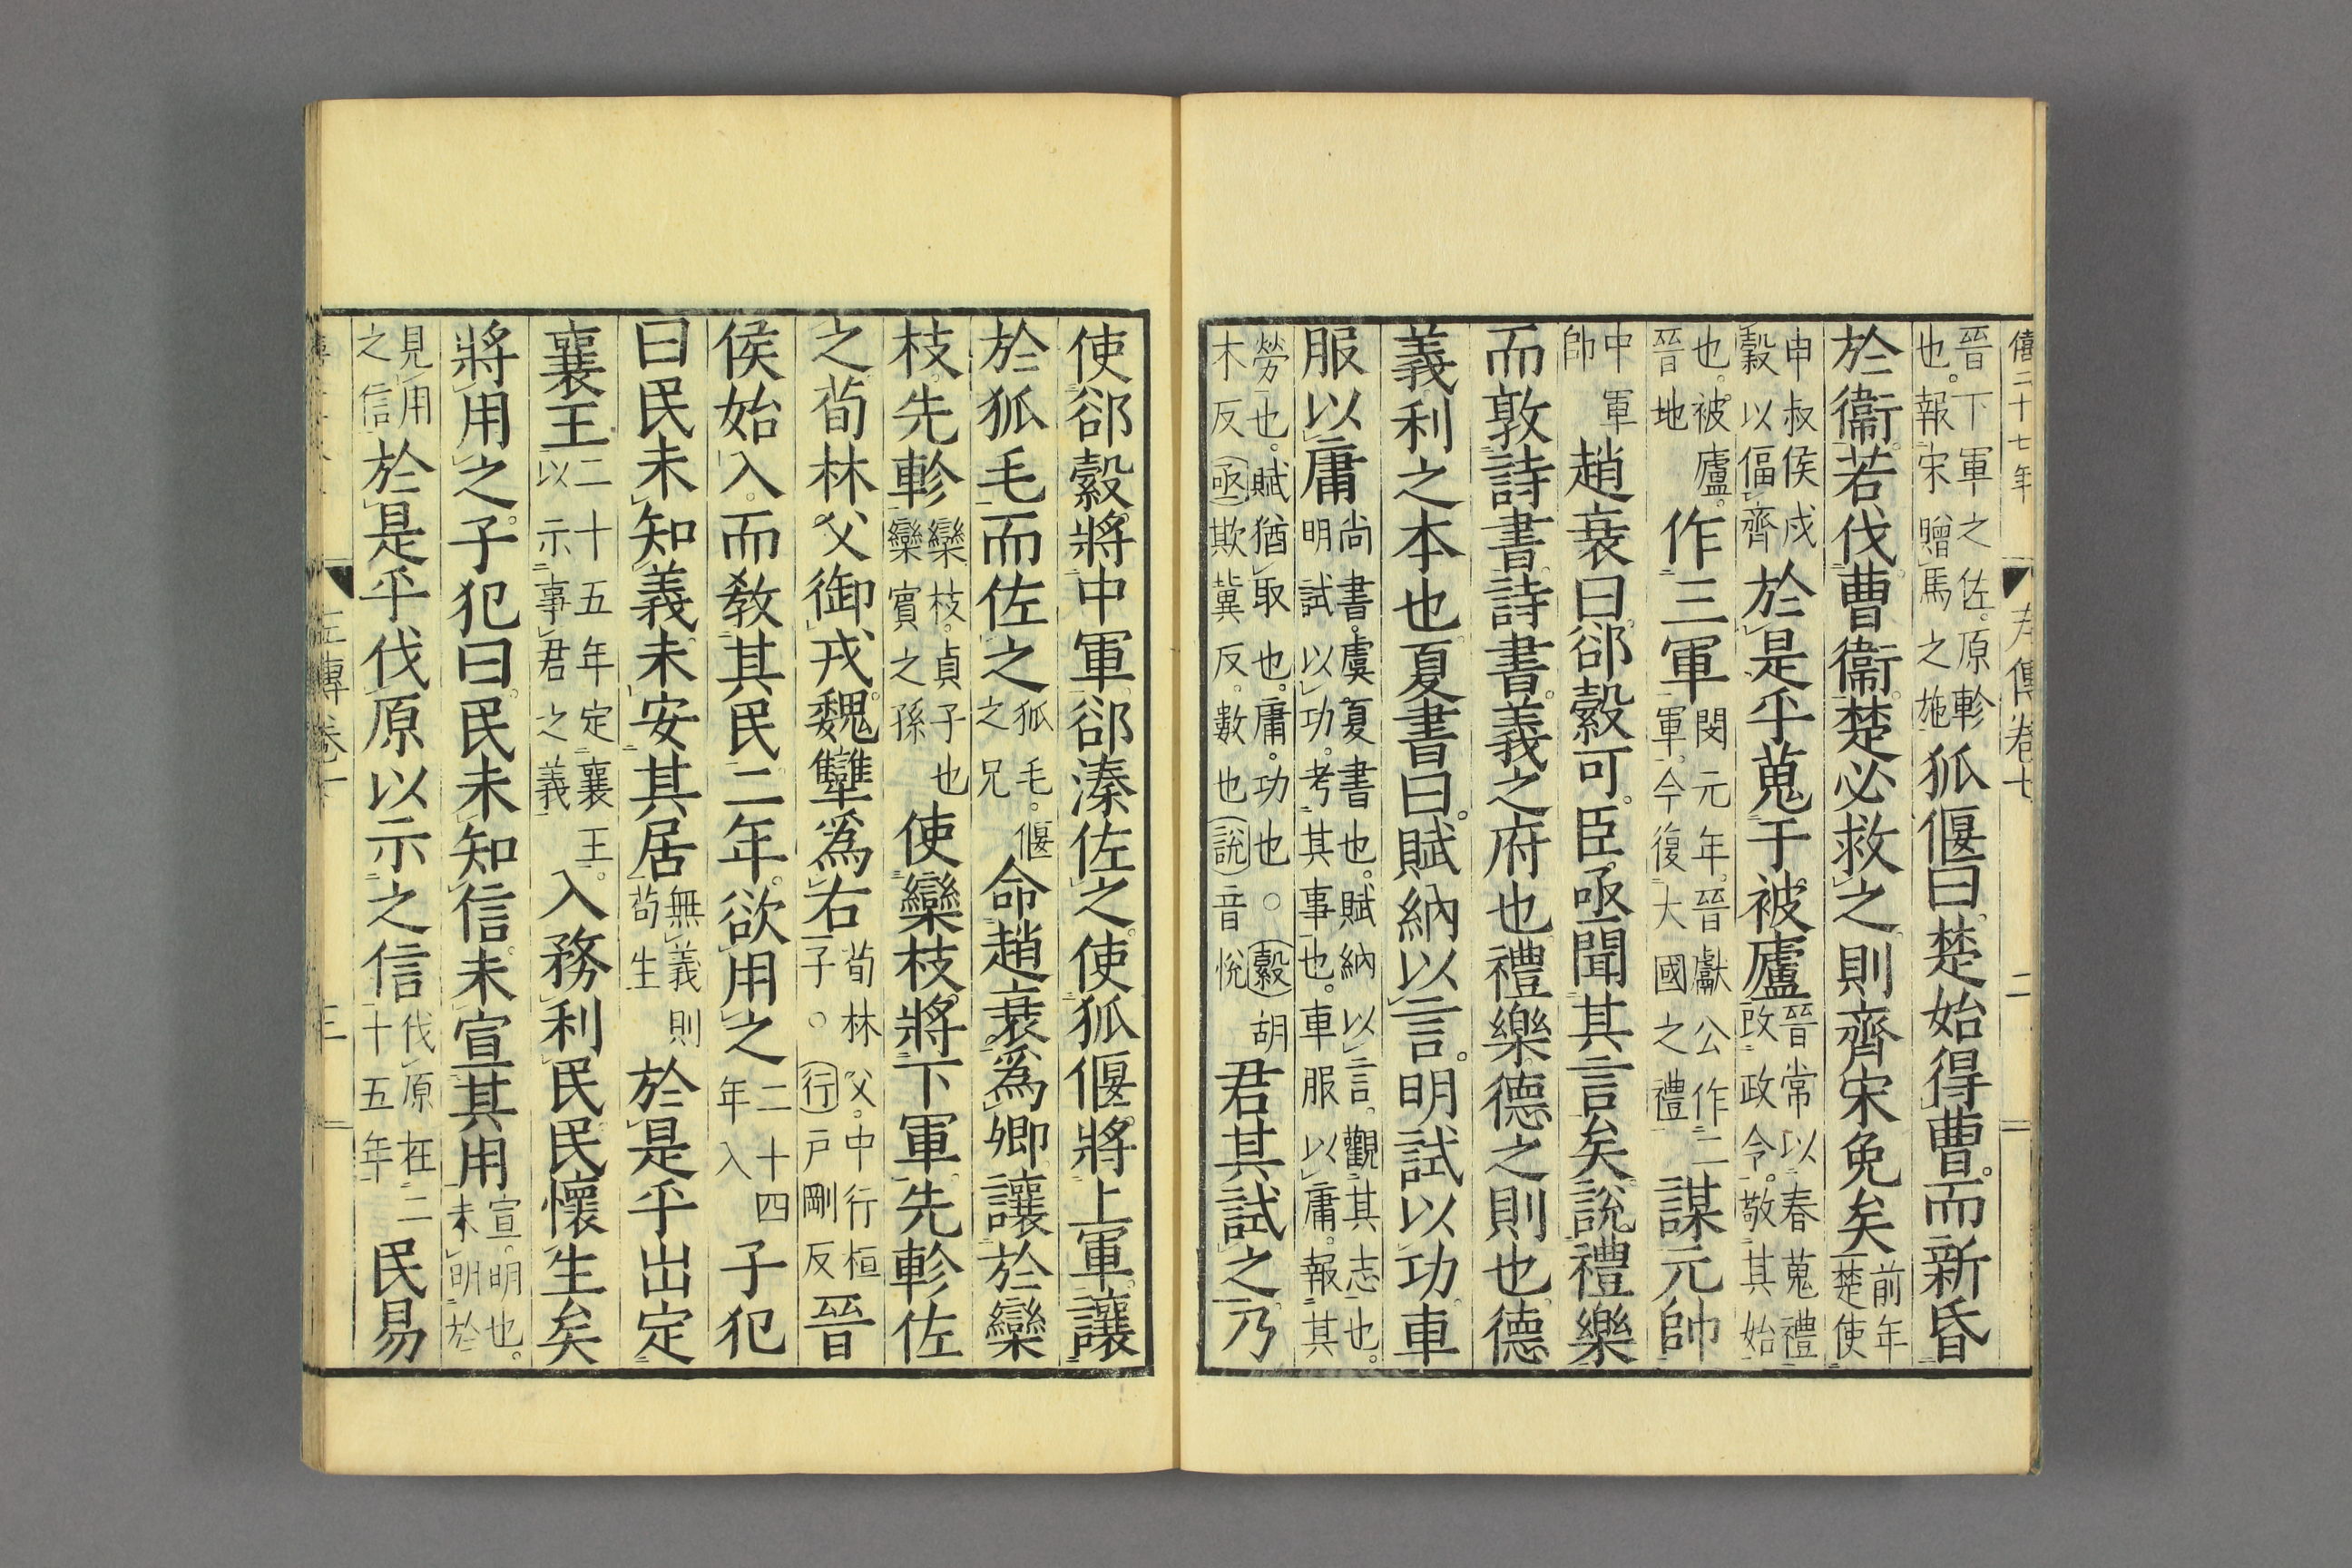 僖二十七年　左傳卷七　二
晉下軍之佐。原軫也。報宋贈馬之施狐偃曰。楚始得曹。而新昏
於衞。若伐曹衞。楚必救之。則齊宋免矣前年楚使
申叔侯戍穀以偪齊於是乎蒐于被廬晉常以春蒐禮改政令。敬其始
也。被廬。晉地作三軍閔元年。晉獻公作二軍。今復大國之禮謀元帥
中軍帥趙衰曰。郤縠可。臣亟聞其言矣。說禮樂
而敦詩書。詩書。義之府也。禮樂。德之則也。德
義。利之本也。夏書曰。賦納以言。明試以功。車
服以庸尚書。虞夏書也。賦納以言。觀其志也。明試以功。考其事也。車服以庸。報其
勞也。賦猶取也。庸。功也。○縠胡木反亟欺冀反。數也說音悅君其試之。乃
使郤縠將中軍。郤溱佐之。使狐偃。將上軍。讓
於狐毛。而佐之狐毛。偃之兄命趙衰。爲卿。讓於欒
枝。先軫欒枝。貞子也欒賓之孫使欒枝。將下軍。先軫佐
之。荀林父御戎。魏犨爲右荀林父。中行桓子。○行戸剛反晉
侯始入。而敎其民。二年。欲用之二十四年入子犯
曰。民未知義。未安其居無義則苟生於是乎出定
襄王二十五年定襄王。以示事君之義入務利民。民懷生矣。
將用之。子犯曰。民未知信。未宣其用宣。明也。未明於
見用之信於是乎伐原以示之信伐原在二十五年民易
左傳卷　三